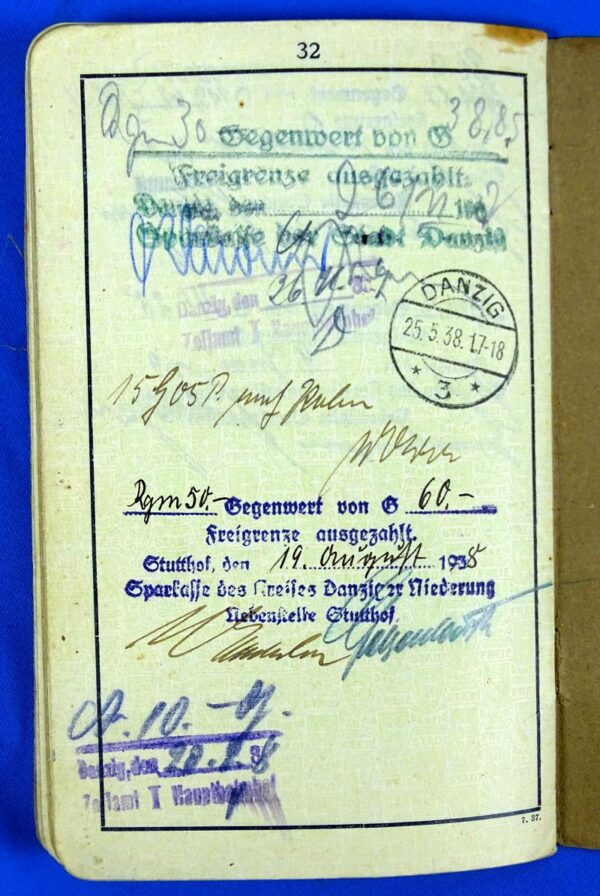 32
Rgm 30 Gegenwert von G 38,85
Freigrenze ausgezahlt.
Danzig, den 26/11 193
Sparkasse der Stadt Danzig
26. 
Danzig, den
Zollamt I Hauptbahnhof
DANZIG
25.5.38.17-18
* 3 *
15 G 05 P auf
Rgm 50.- Gegenwert von G 60.-
Freigrenze ausgezahlt.
Stutthof, den 19. August 1938
Sparkasse des Kreises Danziger Niederung
Nebenstelle Stutthof.
10.-
Danzig, den 20.8.38
Zollamt I Hauptbahnhof
7. 37.